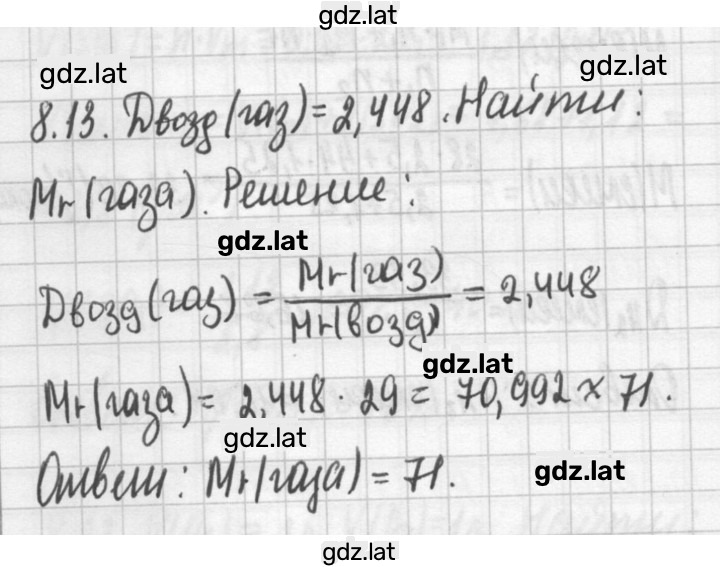 gdz.lat
gdz.lat gdz.lat
8.13. Двозд(газ) = 2,448. Найти:
Mr(газа). Решение:
gdz.lat
Двозд(газ) = Mr(газ) / Mr(возд) = 2,448
gdz.lat
Mr(газа) = 2,448 · 29 = 70,992 ≈ 71.
gdz.lat
Ответ: Mr(газа) = 71. gdz.lat
gdz.lat